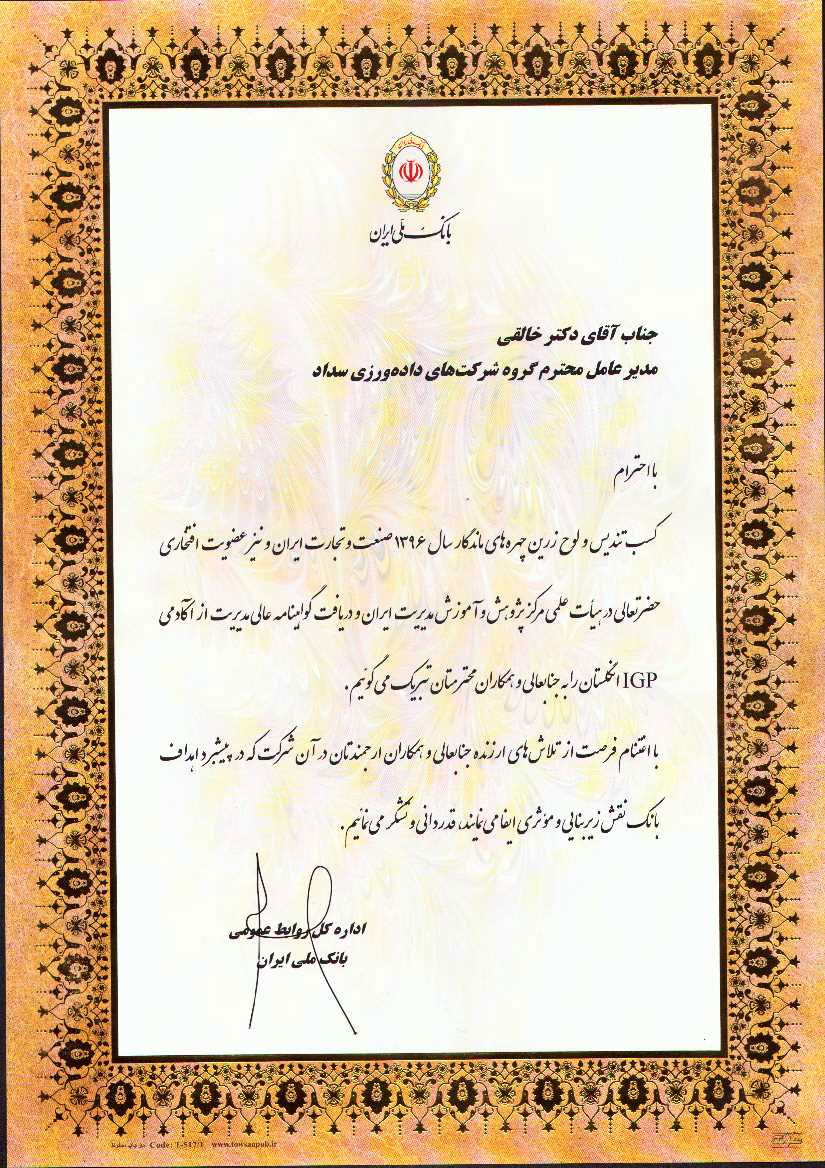 بانک ملّی ایران
جناب آقای دکتر خالقی
مدیر عامل محترم گروه شرکت‌های داده‌ورزی سداد
با احترام
کسب تندیس و لوح زرین چهره‌های ماندگار سال ۱۳۹۶ صنعت و تجارت ایران و نیز عضویت افتخاری
حضرتعالی در هیأت علمی مرکز پژوهش و آموزش مدیریت ایران و دریافت گواهینامه عالی مدیریت از آکادمی
IGP انگلستان را به جنابعالی و همکاران محترمتان تبریک می گوئیم.
با اغتنام فرصت از تلاش‌های ارزنده جنابعالی و همکاران ارجمندتان در آن شرکت که در پیشبرد اهداف
بانک نقش زیربنایی و مؤثری ایفا می نمایند، قدردانی و تشکر می نمائیم.
اداره کل روابط عمومی
بانک ملی ایران
Code: T-517/1 www.towsanpub.ir